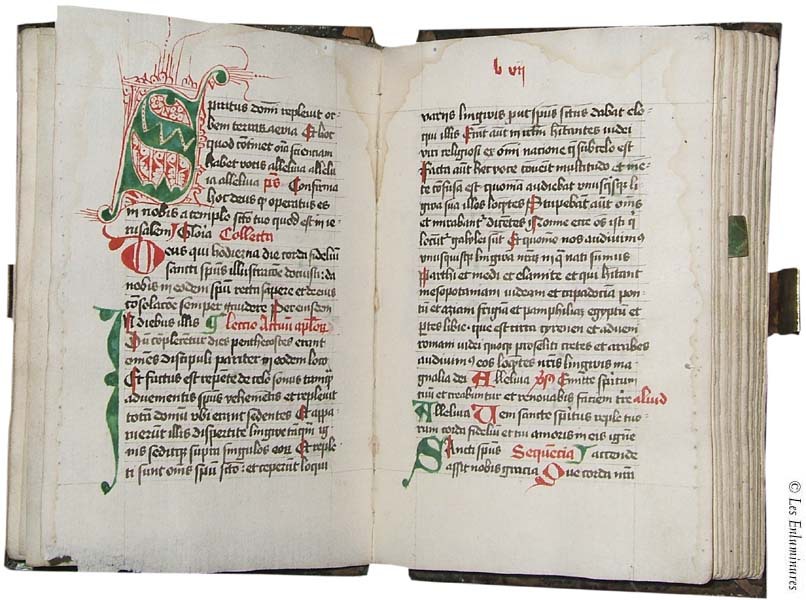 Spiritus domni repleuit or-
bem terrarū aevia Et hoc
quod cōtinet oīa scienciam
habet vocis alleluia allelu
ia alleluia ps Confirma
hoc deus qd operatus es
in nobis a templo scto tuo quod est in ie-
rusalem Gloia Collecta
Deus qui hodierna die corda fideliū
sancti spūs illustracōe docuisti: da
nobis in eodem spū recta sapere et de eius
cōsolacōe semper gaudere Per eiusdem
In diebus illis Lectio Actuū aplor
Cū cōplerētur dies penthecostes erant
omēs discipuli pariter in eodem loco
Et factus est repēte de celo sonus tamqz
aduementis spūs vehemētis et repleuit
totā domū vbi erant sedentes Et appa-
ruerūt illis dispertite līgwe tāqm ig-
nis seditqz supra singulos eorū Et reple-
ti sunt omēs spū scto: et ceperūt loqui
l vij
varijs lingwis put spūs sctus dabat elo-
qui illis Erāt aūt in ierlm hitantes iudei
viri religiosi ex omī nacione q sub celo est
Facta aūt hec voce cōuēit multitudo et mē-
te cōfusa est quoniā audiebat vnusqsqz li
gwa sua illos loqētes Stupebāt aūt omēs
et mirabantr dicētes Nonne ecce oēs isti q
locūtr galylei sūt Et quomō nos audiuimꝰ
vnusquisqz lingwā nrām ī qua nati sumus
Parthi et medi et elamite et qui hitant
mesopotamiam iudeam et capadociam pon
tū et asiam frigiā et pamphiliā egyptū et
ptes libie que est circa cyrenen et aduene
romani iudei quoqz proseliti cretes et arabes
audiuimꝰ eos loqētes nrīs lingwis ma
gnalia dei Alleluia vs Emitte spiritum
tuū et creabuntur et renouabis faciem tre aliud
Alleluia Veni sancte spiritus reple tuo-
rum corda fideliū et tui amoris in eis ignē
accende
Sancti spūs Sequēcia
assit nobis gracia Que corda nrā
© Les Enluminures